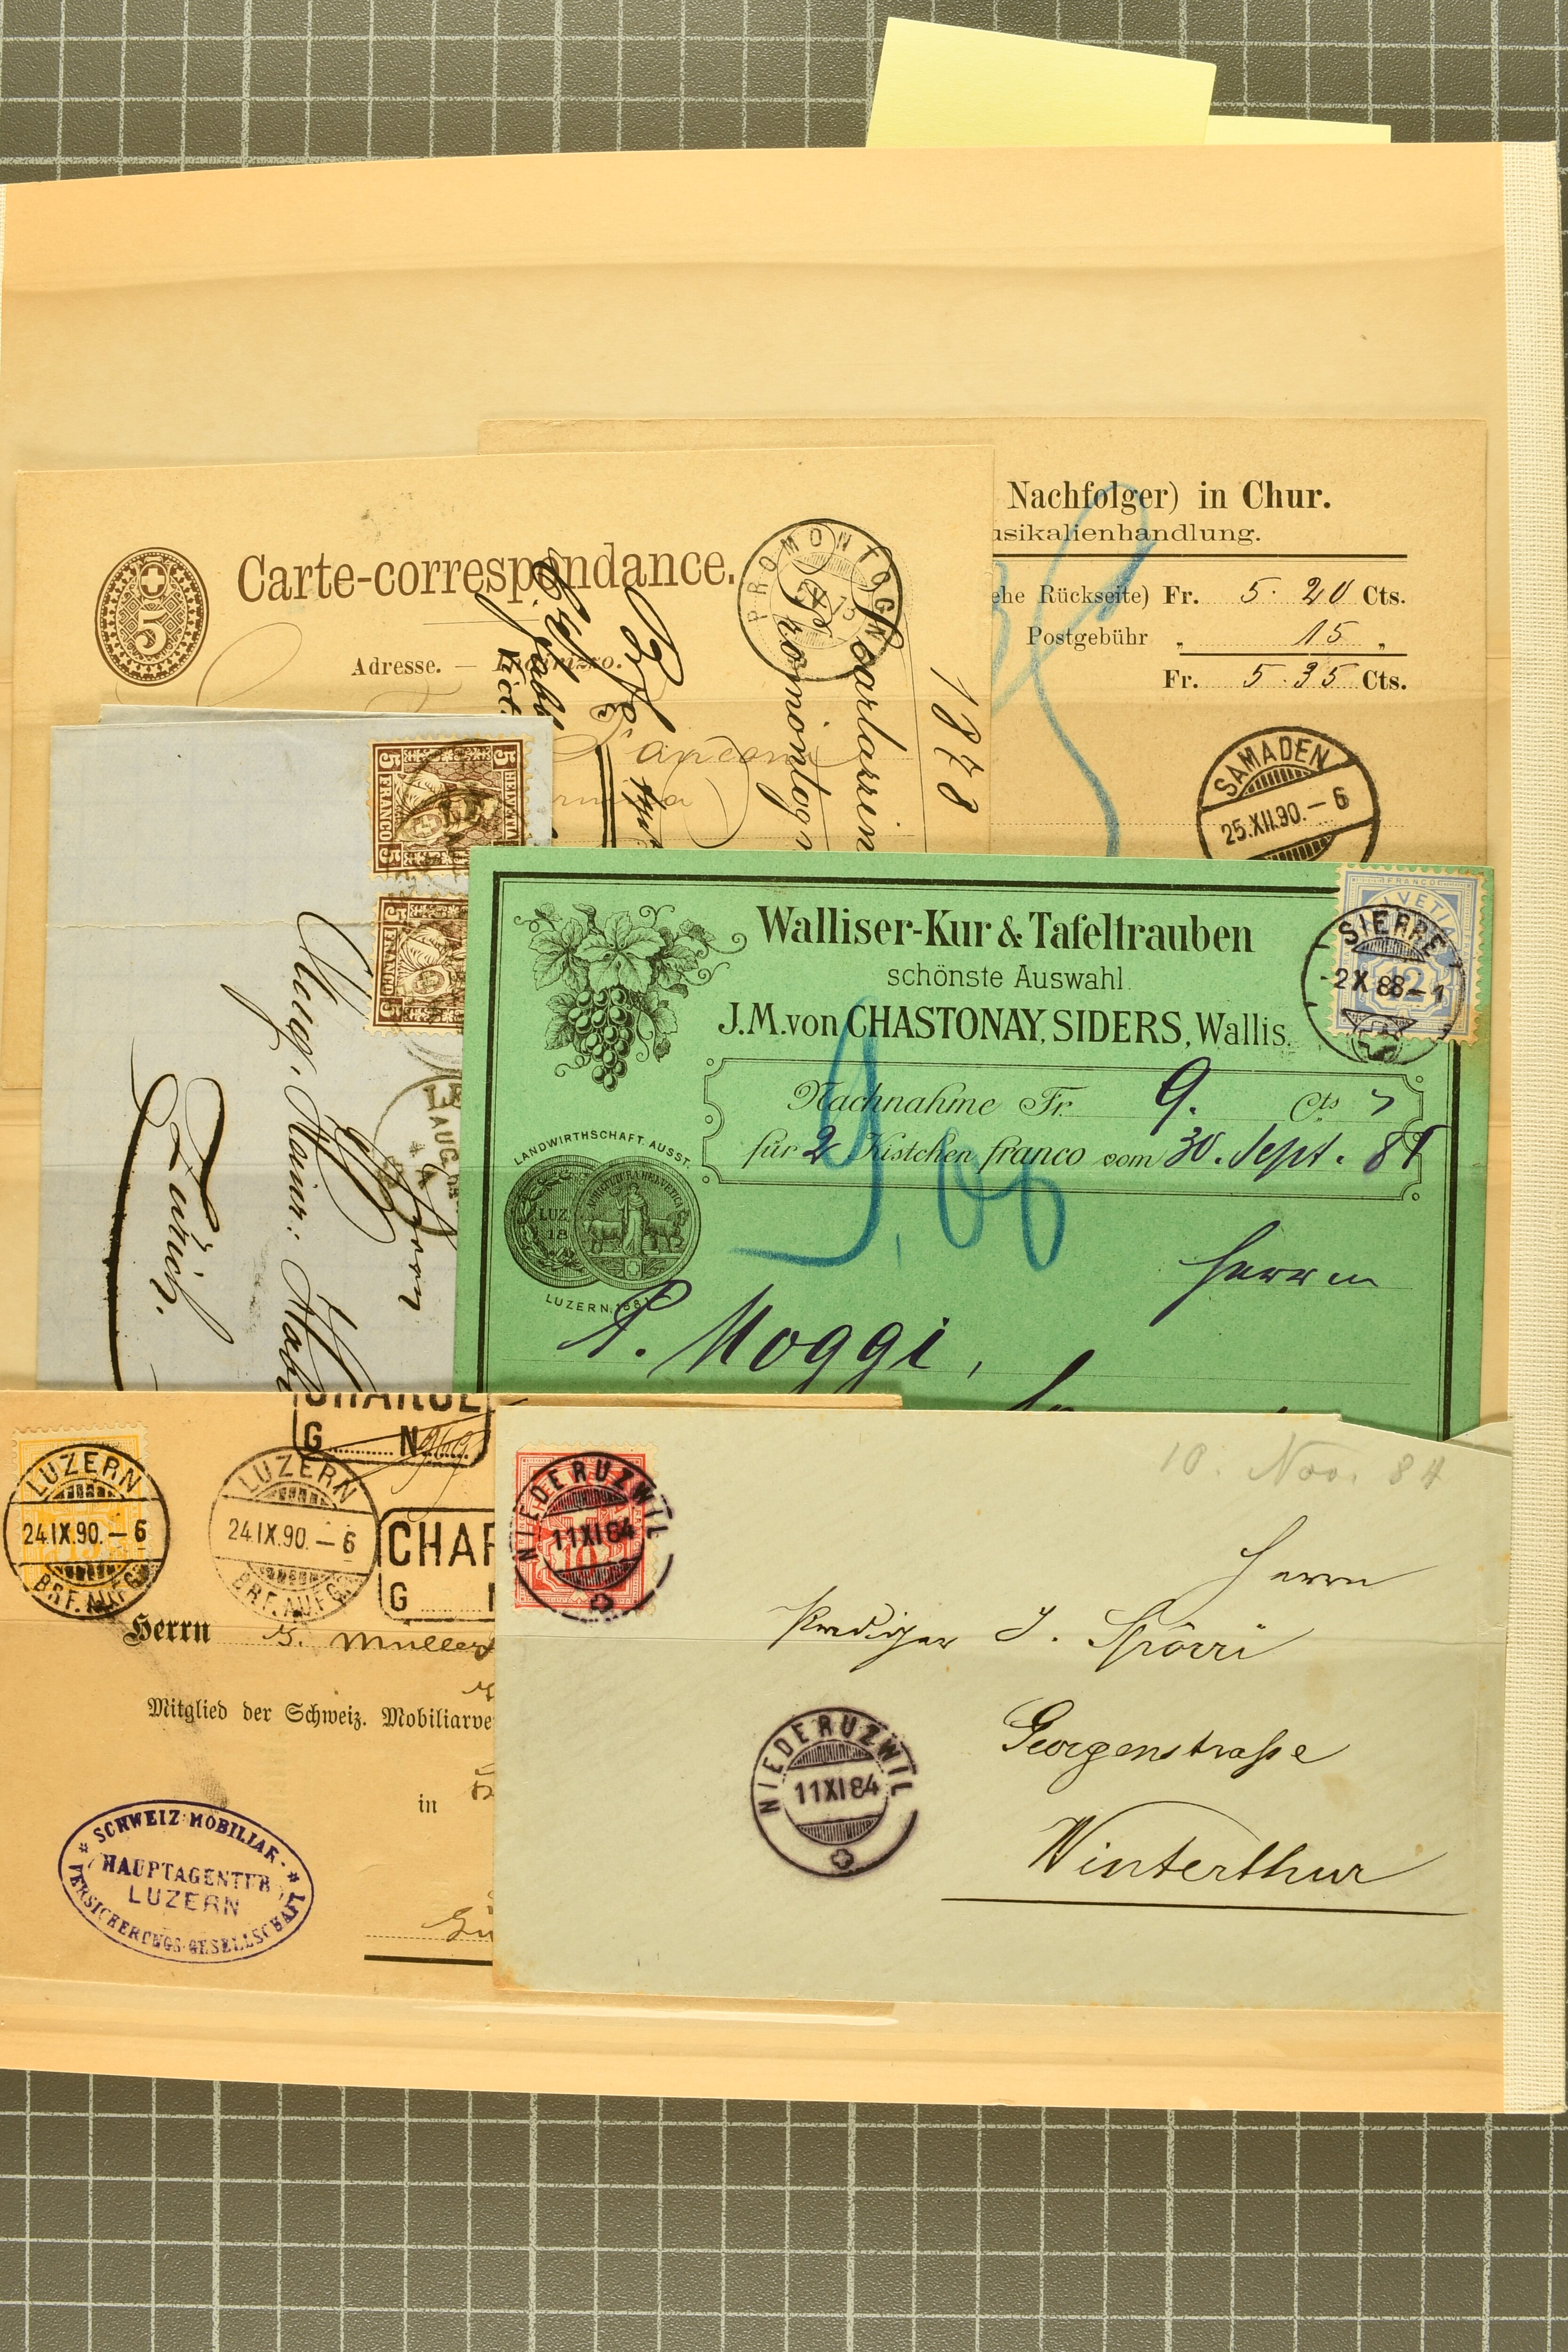 Nachfolger) in Chur.
usikalienhandlung.
ehe Rückseite) Fr. 5. 20 Cts.
Postgebühr „ 15 „
Fr. 5. 35 Cts.
SAMADEN
25.XII.90.–6
5
Carte-correspondance.
Adresse. —
PROMONTOGN
1878
5 HELVETIA 5
FRANCO
5 FRANCO 5
AUG
Herrn
Zürich.
Walliser-Kur & Tafeltrauben
schönste Auswahl
J.M. von CHASTONAY, SIDERS, Wallis.
Nachnahme Fr. 9. Cts
für 2 Kistchen franco vom 30. Sept. 88
FRANCO
12
SIERRE
-2X 88-1
LANDWIRTHSCHAFT. AUSST.
LUZ
18
LUZERN, 1881
Herrn
P. Moggi,
LUZERN
24.IX.90.–6
BRF. AUFG.
LUZERN
24.IX.90.–6
BRF. AUFG.
G N
CHAR
G
Herrn G. Müller
Mitglied der Schweiz. Mobiliarve
in
SCHWEIZ. MOBILIAR-
HAUPTAGENTUR
LUZERN
VERSICHERUNGS-GESELLSCHAFT
10
NIEDERUZWIL
11 XI 84
10. Nov. 84
Herrn
Prediger J. Spörri
Georgenstraße
Winterthur
NIEDERUZWIL
11 XI 84